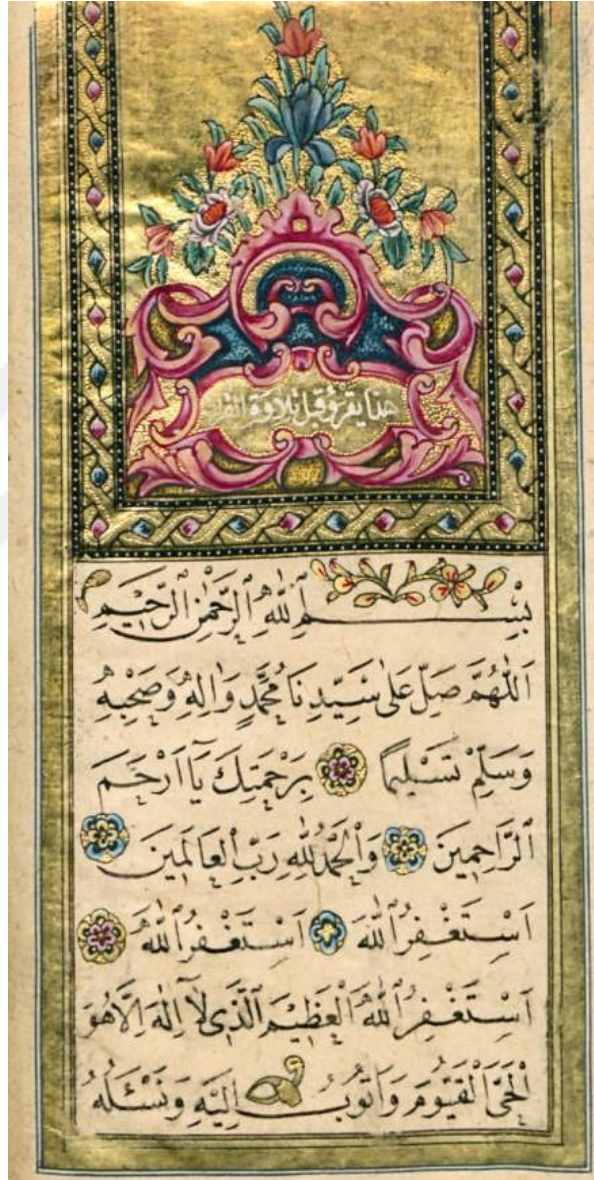 هذا يقرؤ قبل تلاوة القرآن
بِسْمِ اللّٰهِ الرَّحْمٰنِ الرَّحٖيمِ
اَللّٰهُمَّ صَلِّ عَلٰى سَيِّدِنَا مُحَمَّدٍ وَاٰلِهٖ وَصَحْبِهٖ
وَسَلِّمْ تَسْلٖيمًا بِرَحْمَتِكَ يَٓا اَرْحَمَ
الرَّاحِمٖينَ وَالْحَمْدُ لِلّٰهِ رَبِّ الْعَالَمٖينَ
اَسْتَغْفِرُ اللّٰهَ اَسْتَغْفِرُ اللّٰهَ
اَسْتَغْفِرُ اللّٰهَ الْعَظٖيمَ الَّذٖى لَٓا اِلٰهَ اِلَّا هُوَ
الْحَىَّ الْقَيُّومَ وَاَتُوبُ اِلَيْهِ وَنَسْئَلُهُ